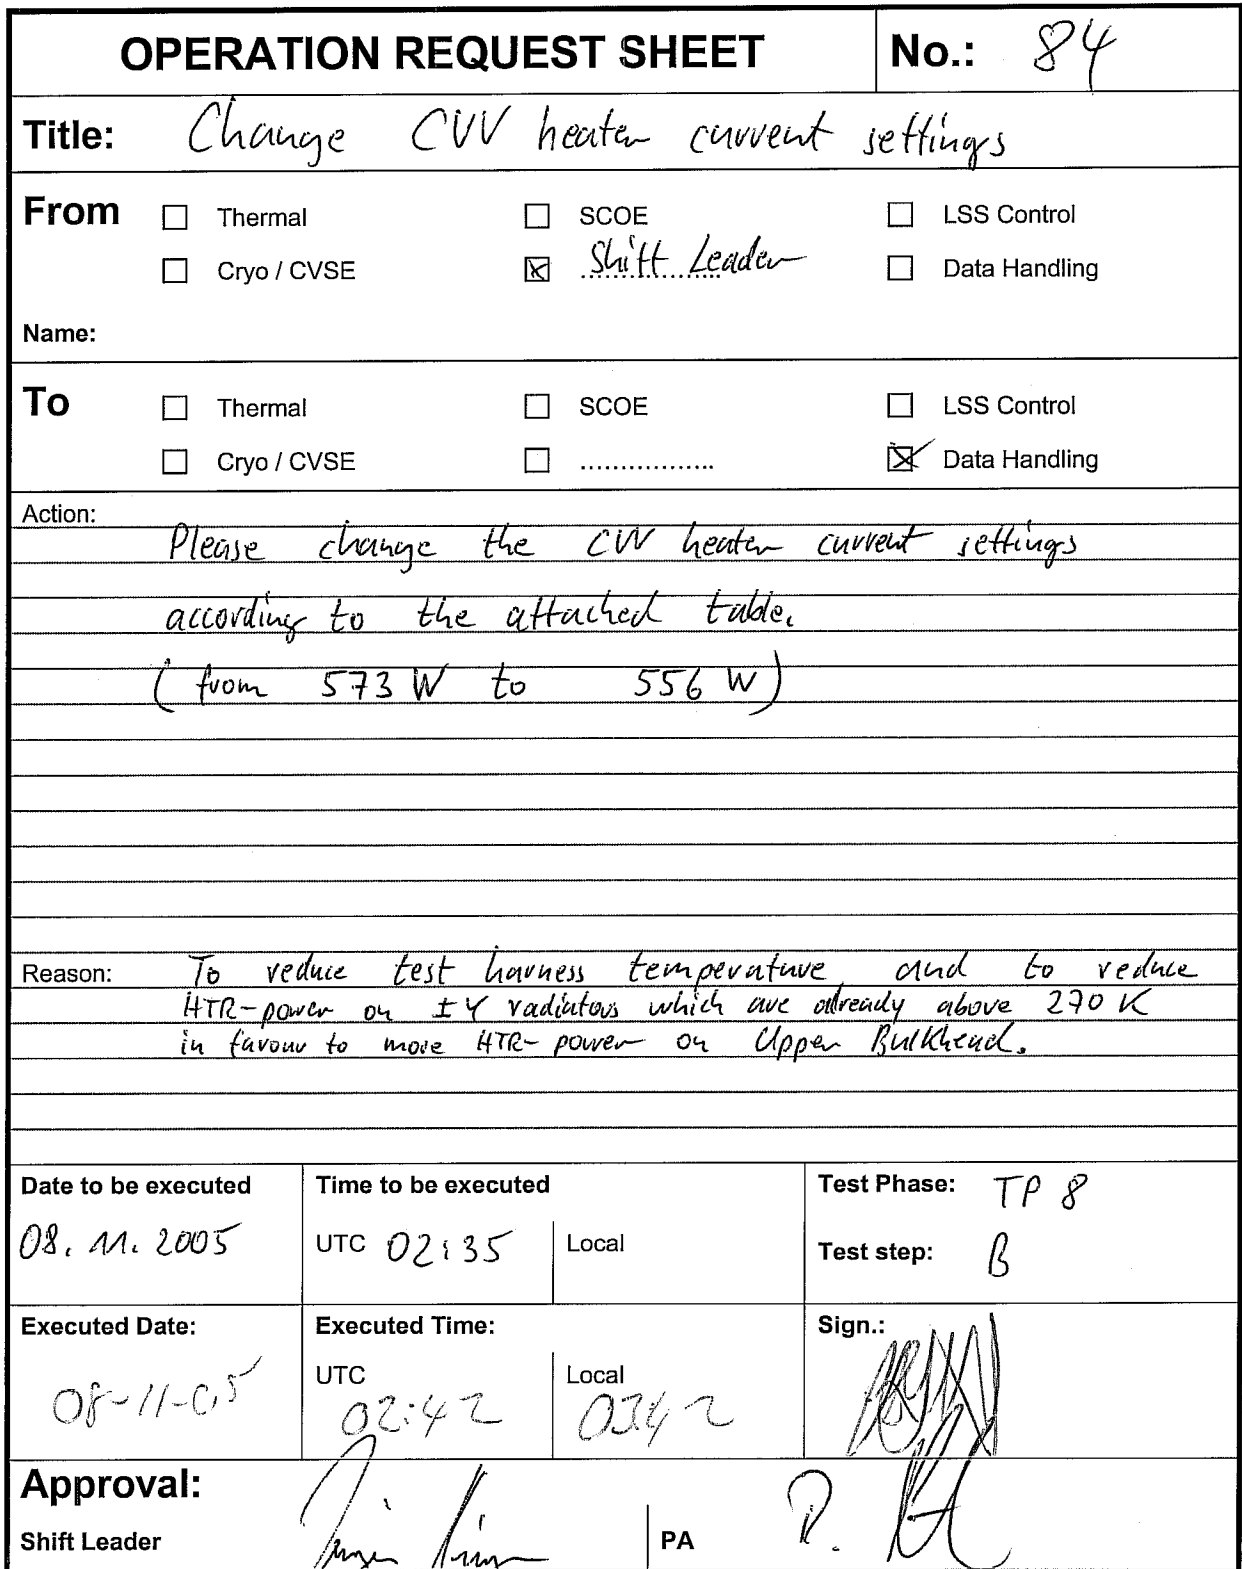 OPERATION REQUEST SHEET No.: 84
Title: Change CVV heater current settings
From Thermal SCOE LSS Control
Cryo / CVSE Shift Leader Data Handling
Name:
To Thermal SCOE LSS Control
Cryo / CVSE ................. Data Handling
Action:
Please change the CVV heater current settings
according to the attached table.
(from 573 W to 556 W)
Reason: To reduce test harness temperature and to reduce
HTR-power on ±Y radiators which are already above 270 K
in favour to more HTR-power on Upper Bulkhead.
Date to be executed Time to be executed Test Phase: TP 8
08.11.2005 UTC 02:35 Local Test step: B
Executed Date: Executed Time: Sign.:
08-11-05 UTC 02:42 Local 03:42
Approval:
Shift Leader PA